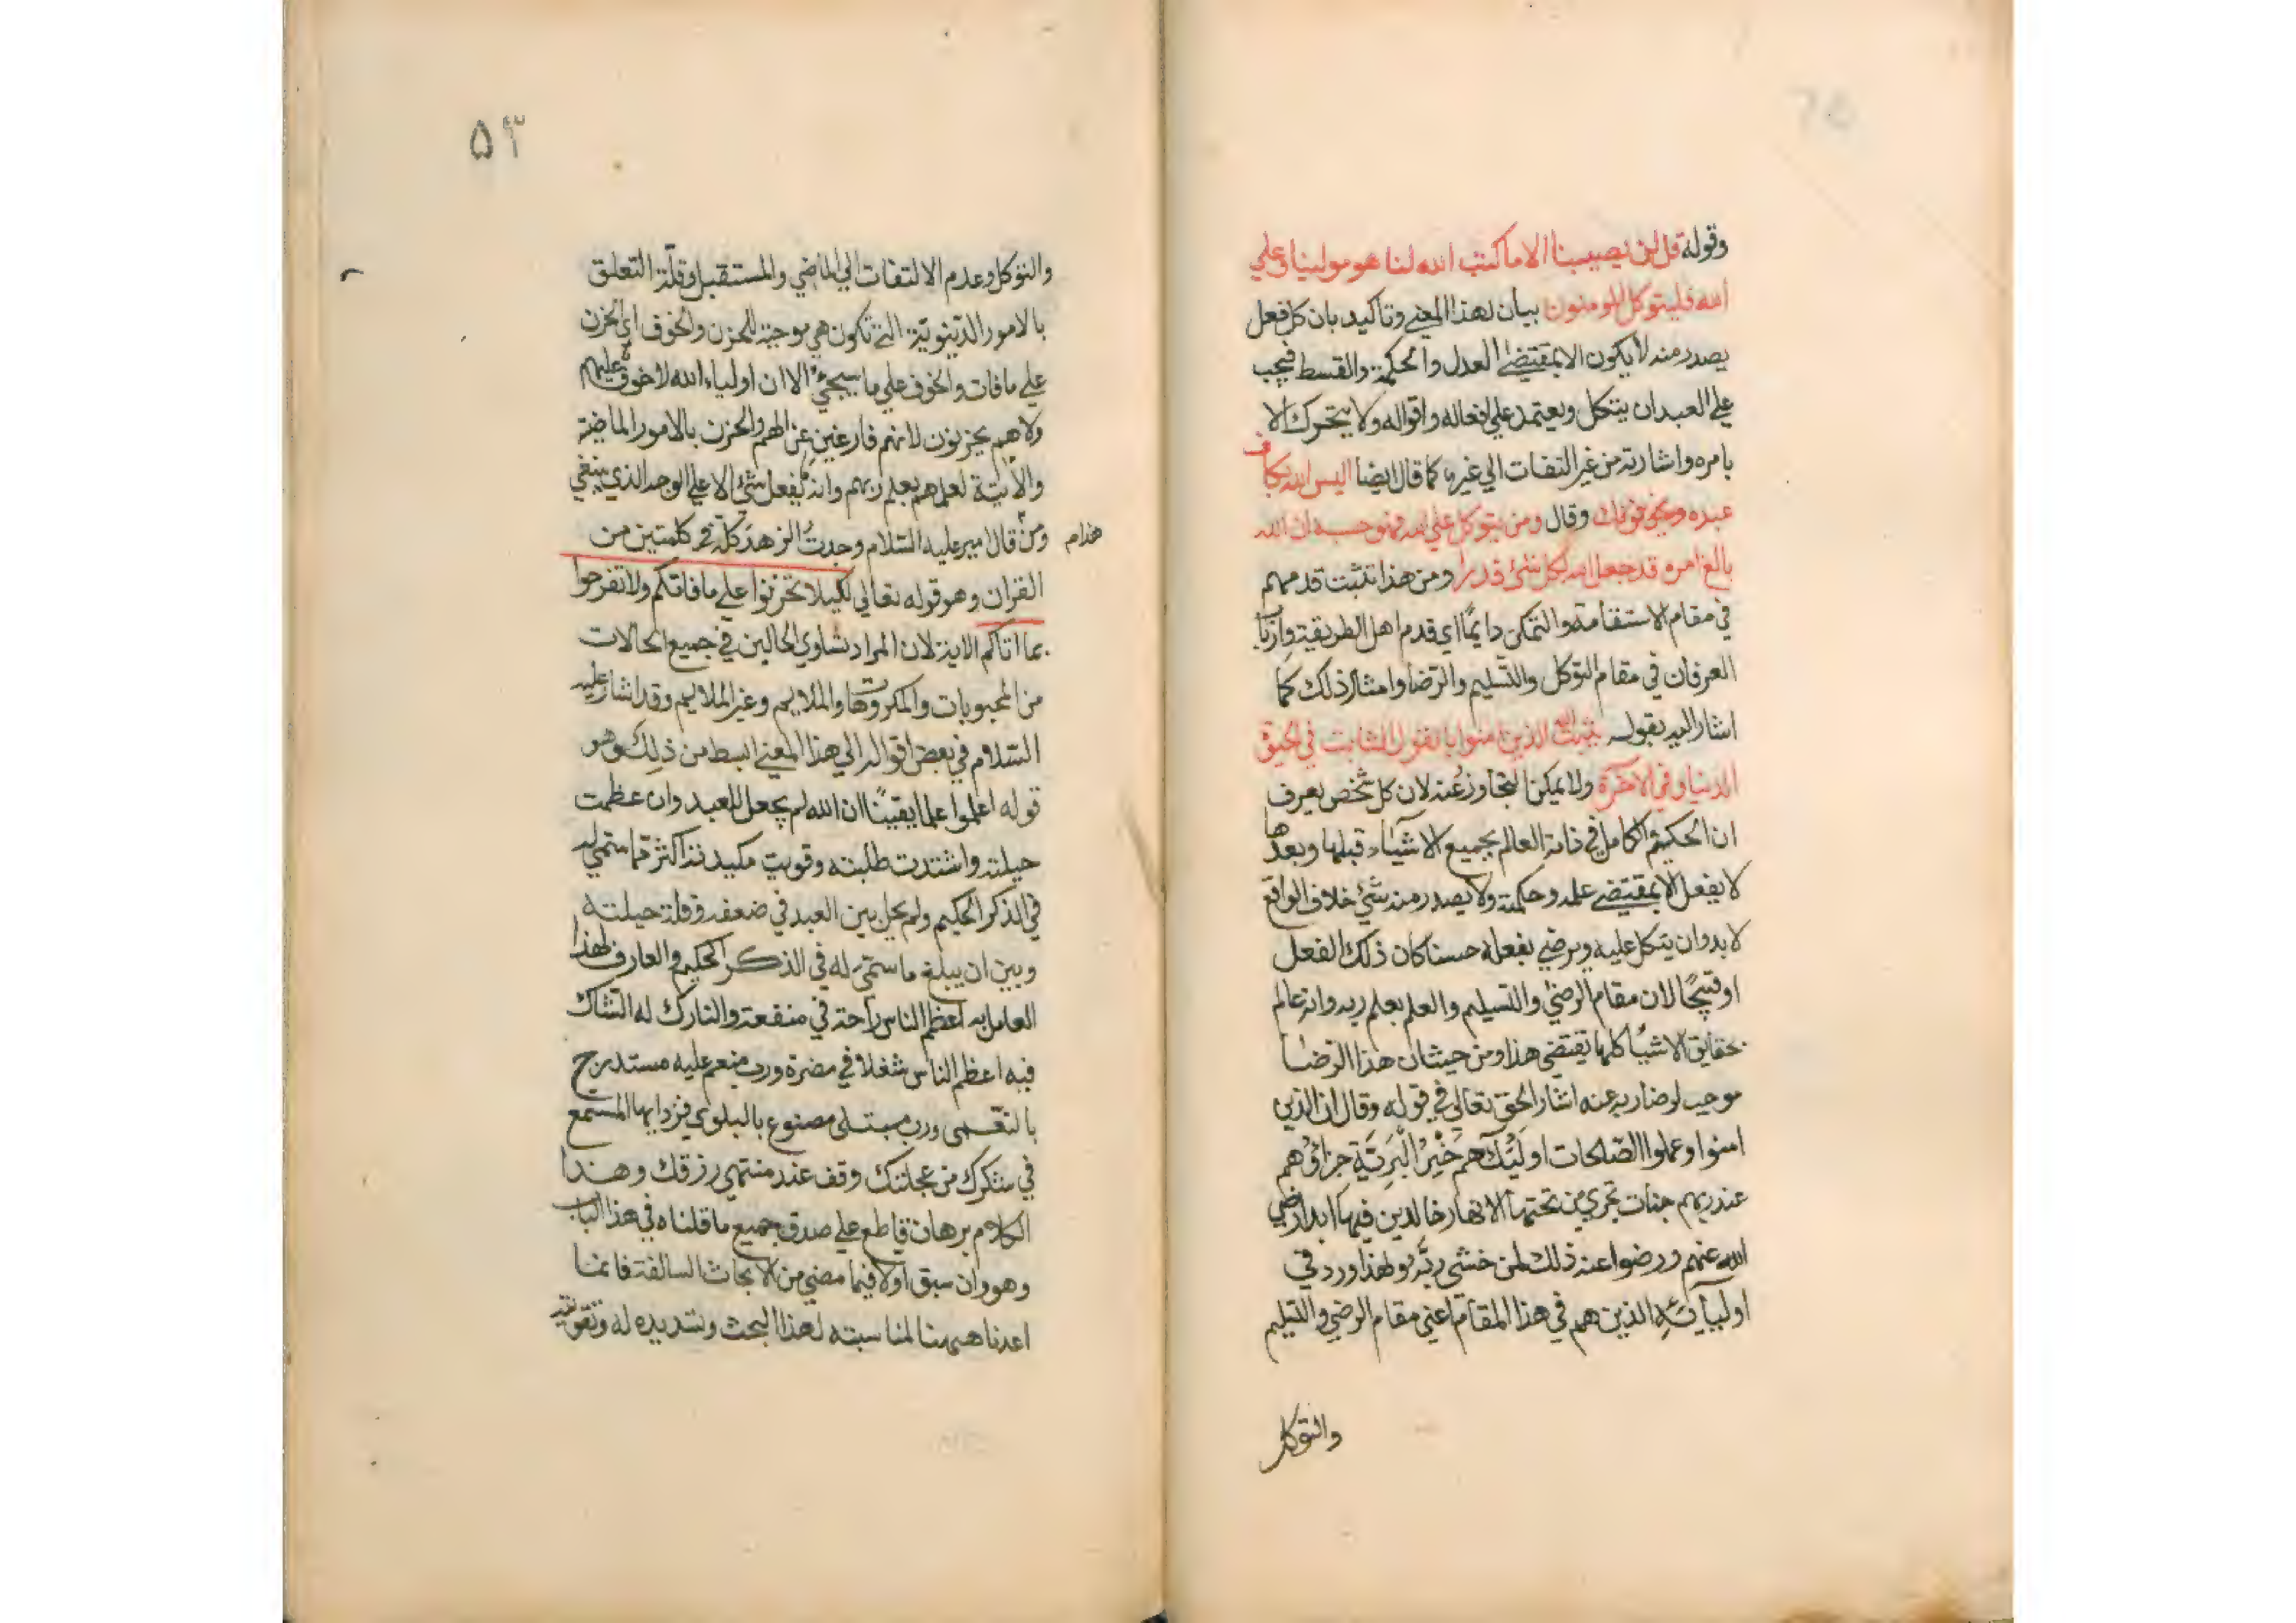 وقوله قل لن يصيبنا الا ما كتب الله لنا هو مولينا وعلي
الله فليتوكل المومنون بيان لهذا المعني وتاكيد بان كل فعل
يصدر منه لا يكون الا بمقتضي العدل والحكمة والقسط فيجب
علي العبد ان يتكل ويعتمد علي افعاله واقواله ولا يتحرك الا
بامره واشارته من غير التفات الي غيره كما قال ايضا اليس الله بكاف
عبده ويخوفونك وقال ومن يتوكل علي الله فهو حسبه ان الله
بالغ امره قد جعل الله لكل شئ قدرا ومن هذا تثبت قدمهم
في مقام الاستقامة والتمكن دايمًا اي قدم اهل الطريقة وارباب
العرفان في مقام التوكل والتسليم والرضا وامثال ذلك كما
اشار اليه بقوله يثبت الله الذين امنوا بالقول الثابت في الحيوة
الدنيا وفي الاخرة ولا يمكن التجاوز عنه لان كل شخص يعرف
ان الحكيم الكامل في ذاته العالم بجميع الاشياء قبلها وبعدها
لا يفعل الا بمقتضي علمه وحكمته ولا يصدر منه شئ خلاف الواقع
لا بد وان يتكل عليه ويرضي بفعله حسنا كان ذلك الفعل
او قبيحًا لان مقام الرضي والتسليم والعلم بعلم ربه وانه عالم
بحقايق الاشيا كلها يقتضي هذا ومن حيث ان هذا الرضا
موجب لرضا ربه عنه اشار الحق تعالي في قوله وقال ان الذين
امنوا وعملوا الصّالحات اولَئِك هم خَيْرُ الْبَرِيَّةِ جزاؤهم
عند ربهم جنات تجري من تحتها الانهار خالدين فيها ابدا رضي
الله عنهم ورضوا عنه ذلك لمن خشي ربّه ولهذا ورد في
اوليآئهِ الذين هم في هذا المقام اعني مقام الرضي والتسليم
والتوكل
۵۳
والتوكل وعدم الالتفات الي الماضي والمستقبل وقلّة التعلق
بالامور الدّينويّة التي تكون هي موجبة للحزن والخوف اي الحزن
علي ما فات والخوف علي ما سيجئ الا ان اولياء الله لا خوف عليهم
ولا هم يحزنون لانهم فارغين عن الهم والحزن بالامور الماضية
والآتية لعلمهم بعلم ربهم وانه لا يفعل شئ الا علي الوجه الذي ينبغي
ومن قال امير عليه السّلام وجدتُ الزهدَ كلّه في كلمتين من
القران وهو قوله تعالي لكيلا تحزنوا علي ما فاتكم ولا تفرحوا
بما اتاكم الاية لان المراد تساوي الحالين في جميع الحالات
من المحبوبات والمكروهات والملايم وغير الملايم وقد اشار عليه
السّلام في بعض اقواله الي هذا المعني ابسط من ذلك وهو
قوله اعلموا علما يقينًا ان الله لم يجعل للعبد وان عظمت
حيلته واشتدت طلبته وقويت مكيدته اكثر مما ستمي له
في الذكر الحكيم ولم يحل بين العبد في ضعفه وقلة حيلته
وبين ان يبلغ ما ستمي له في الذكر الحكيم والعارف لهذا
العامل به اعظم الناس راحة في منفعة والتارك له الشاك
فيه اعظم الناس شغلا في مضرة ورب منعم عليه مستدرج
بالنعمي ورب مبتلي مصنوع بالبلوي فزد ايها المستمع
في شكرك من عجلتك وقف عند منتهي رزقك وهذا
الكلام برهان قاطع علي صدق جميع ما قلناه في هذا الباب
وهو وان سبق اولا فيما مضي من الابحاث السالفة فانما
اعدنا هيهنا لمناسبته لهذا البحث وتسديده له وتقويته